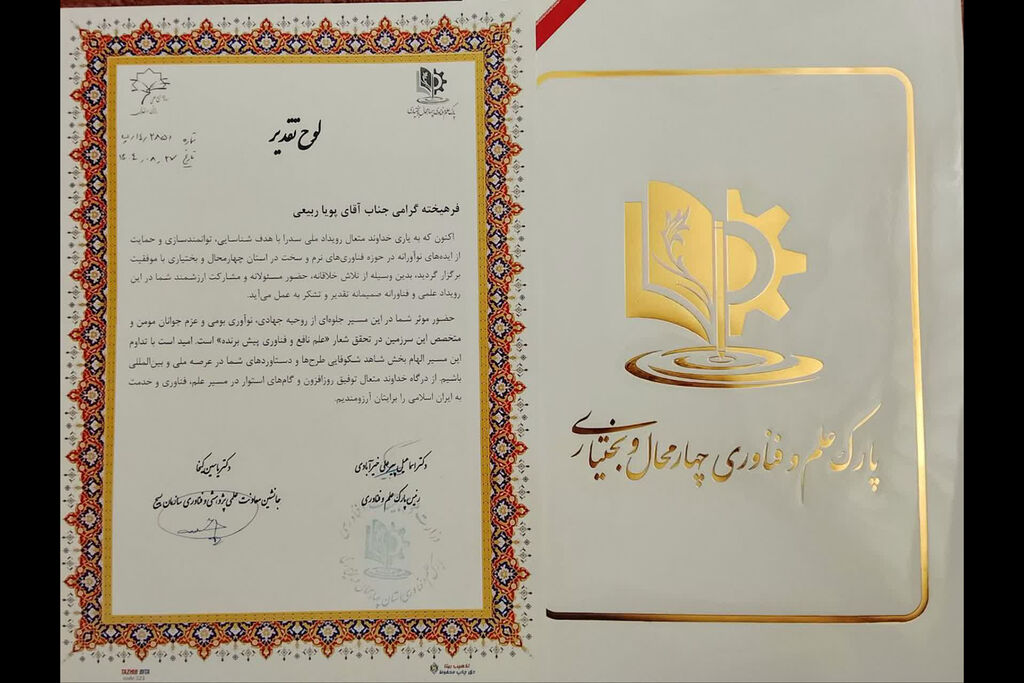 پارک علم و فناوری چهارمحال و بختیاری
لوح تقدیر
شماره
تاریخ ۱۴۰۴/۰۸/۲۷
فرهیخته گرامی جناب آقای پویا ربیعی
اکنون که به یاری خداوند متعال رویداد ملی سدرا با هدف شناسایی، توانمندسازی و حمایت
از ایده‌های نوآورانه در حوزه فناوری‌های نرم و سخت در استان چهارمحال و بختیاری با موفقیت
برگزار گردید، بدین وسیله از تلاش خلاقانه، حضور مسئولانه و مشارکت ارزشمند شما در این
رویداد علمی و فناورانه صمیمانه تقدیر و تشکر به عمل می‌آید.
حضور موثر شما در این مسیر جلوه‌ای از روحیه جهادی، نوآوری بومی و عزم جوانان مومن و
متخصص این سرزمین در تحقق شعار «علم نافع و فناوری پیش برنده» است. امید است با تداوم
این مسیر الهام بخش شاهد شکوفایی طرح‌ها و دستاوردهای شما در عرصه ملی و بین‌المللی
باشیم. از درگاه خداوند متعال توفیق روزافزون و گام‌های استوار در مسیر علم، فناوری و خدمت
به ایران اسلامی را برایتان آرزومندیم.
دکتر اسماعیل پیرعلی خیرآبادی
رئیس پارک علم و فناوری
دکتر یاسین کیخا
جانشین معاونت علمی پژوهشی و فناوری سازمان بسیج
تذهیب بیتا
حق چاپ محفوظ
TAZHIB BITA
code:123
پارک علم و فناوری چهارمحال و بختیاری